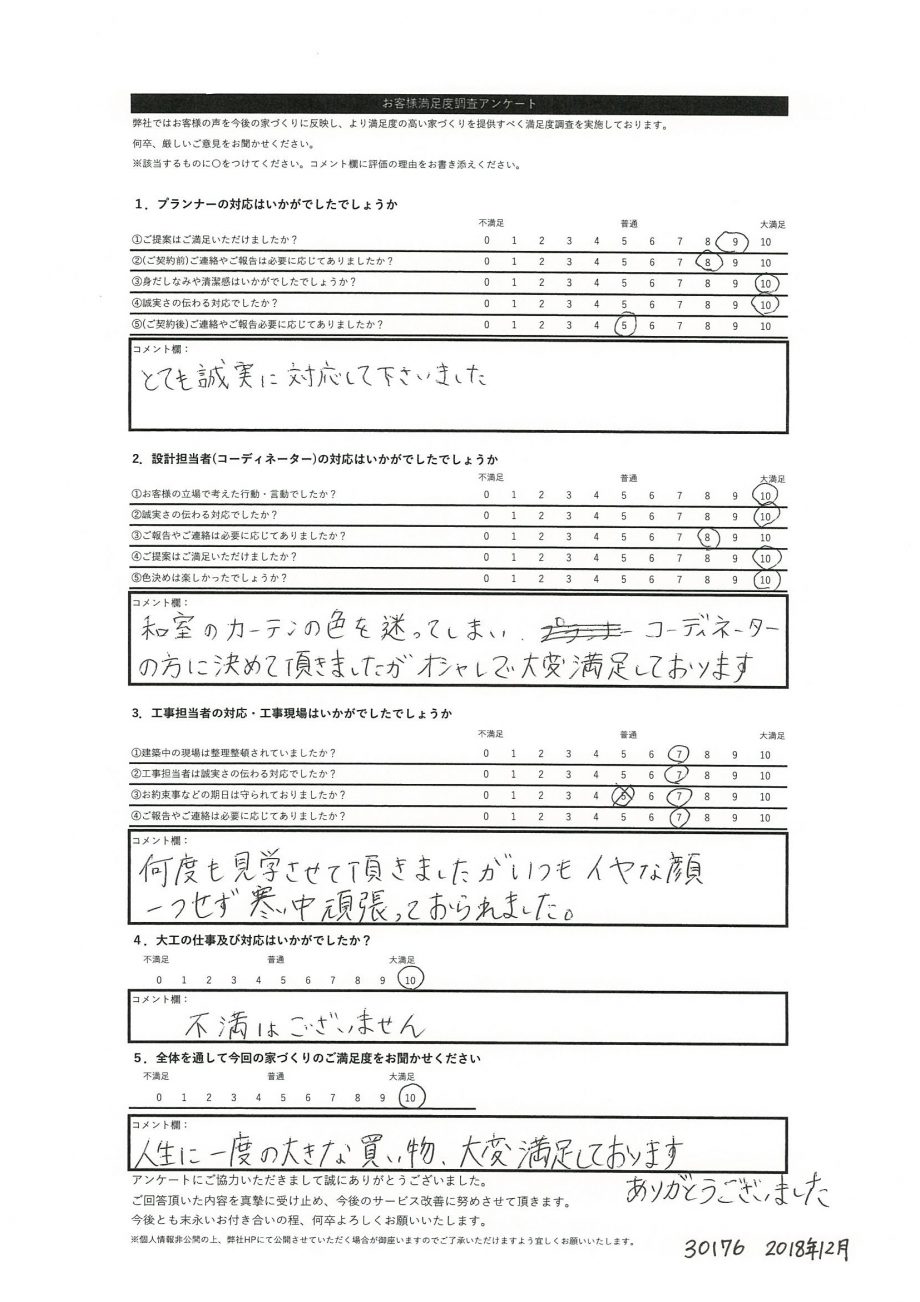 お客様満足度調査アンケート
弊社ではお客様の声を今後の家づくりに反映し、より満足度の高い家づくりを提供すべく満足度調査を実施しております。
何卒、厳しいご意見をお聞かせください。
※該当するものに〇をつけてください。コメント欄に評価の理由をお書き添えください。
1．プランナーの対応はいかがでしたでしょうか
不満足 普通 大満足
①ご提案はご満足いただけましたか？ 0 1 2 3 4 5 6 7 8 9 10
②(ご契約前)ご連絡やご報告は必要に応じてありましたか？ 0 1 2 3 4 5 6 7 8 9 10
③身だしなみや清潔感はいかがでしたでしょうか？ 0 1 2 3 4 5 6 7 8 9 10
④誠実さの伝わる対応でしたか？ 0 1 2 3 4 5 6 7 8 9 10
⑤(ご契約後)ご連絡やご報告必要に応じてありましたか？ 0 1 2 3 4 5 6 7 8 9 10
コメント欄：
とても誠実に対応して下さいました
2．設計担当者(コーディネーター)の対応はいかがでしたでしょうか
不満足 普通 大満足
①お客様の立場で考えた行動・言動でしたか？ 0 1 2 3 4 5 6 7 8 9 10
②誠実さの伝わる対応でしたか？ 0 1 2 3 4 5 6 7 8 9 10
③ご報告やご連絡は必要に応じてありましたか？ 0 1 2 3 4 5 6 7 8 9 10
④ご提案はご満足いただけましたか？ 0 1 2 3 4 5 6 7 8 9 10
⑤色決めは楽しかったでしょうか？ 0 1 2 3 4 5 6 7 8 9 10
コメント欄：
和室のカーテンの色を迷ってしまい、コーディネーター
の方に決めて頂きましたがオシャレで大変満足しております
3．工事担当者の対応・工事現場はいかがでしたでしょうか
不満足 普通 大満足
①建築中の現場は整理整頓されていましたか？ 0 1 2 3 4 5 6 7 8 9 10
②工事担当者は誠実さの伝わる対応でしたか？ 0 1 2 3 4 5 6 7 8 9 10
③お約束事などの期日は守られておりましたか？ 0 1 2 3 4 5 6 7 8 9 10
④ご報告やご連絡は必要に応じてありましたか？ 0 1 2 3 4 5 6 7 8 9 10
コメント欄：
何度も見学させて頂きましたがいつもイヤな顔
一つせず寒い中頑張っておられました。
4．大工の仕事及び対応はいかがでしたか？
不満足 普通 大満足
0 1 2 3 4 5 6 7 8 9 10
コメント欄：
不満はございません
5．全体を通して今回の家づくりのご満足度をお聞かせください
不満足 普通 大満足
0 1 2 3 4 5 6 7 8 9 10
コメント欄：
人生に一度の大きな買い物、大変満足しております
ありがとうございました
アンケートにご協力いただきまして誠にありがとうございました。
ご回答頂いた内容を真摯に受け止め、今後のサービス改善に努めさせて頂きます。
今後とも末永いお付き合いの程、何卒よろしくお願いいたします。
※個人情報非公開の上、弊社HPにて公開させていただく場合が御座いますのでご了承いただけますよう宜しくお願いいたします。
30176 2018年12月